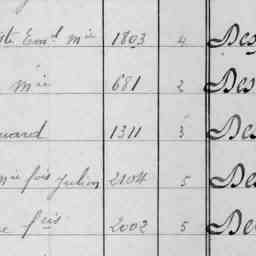 Em.d M.ie 1803 4 Des
M.ie 681 2 Des
uard 1311 3 Des
M.ie f.ois Julien 2104 5 Des
f.ois 2002 5 Des